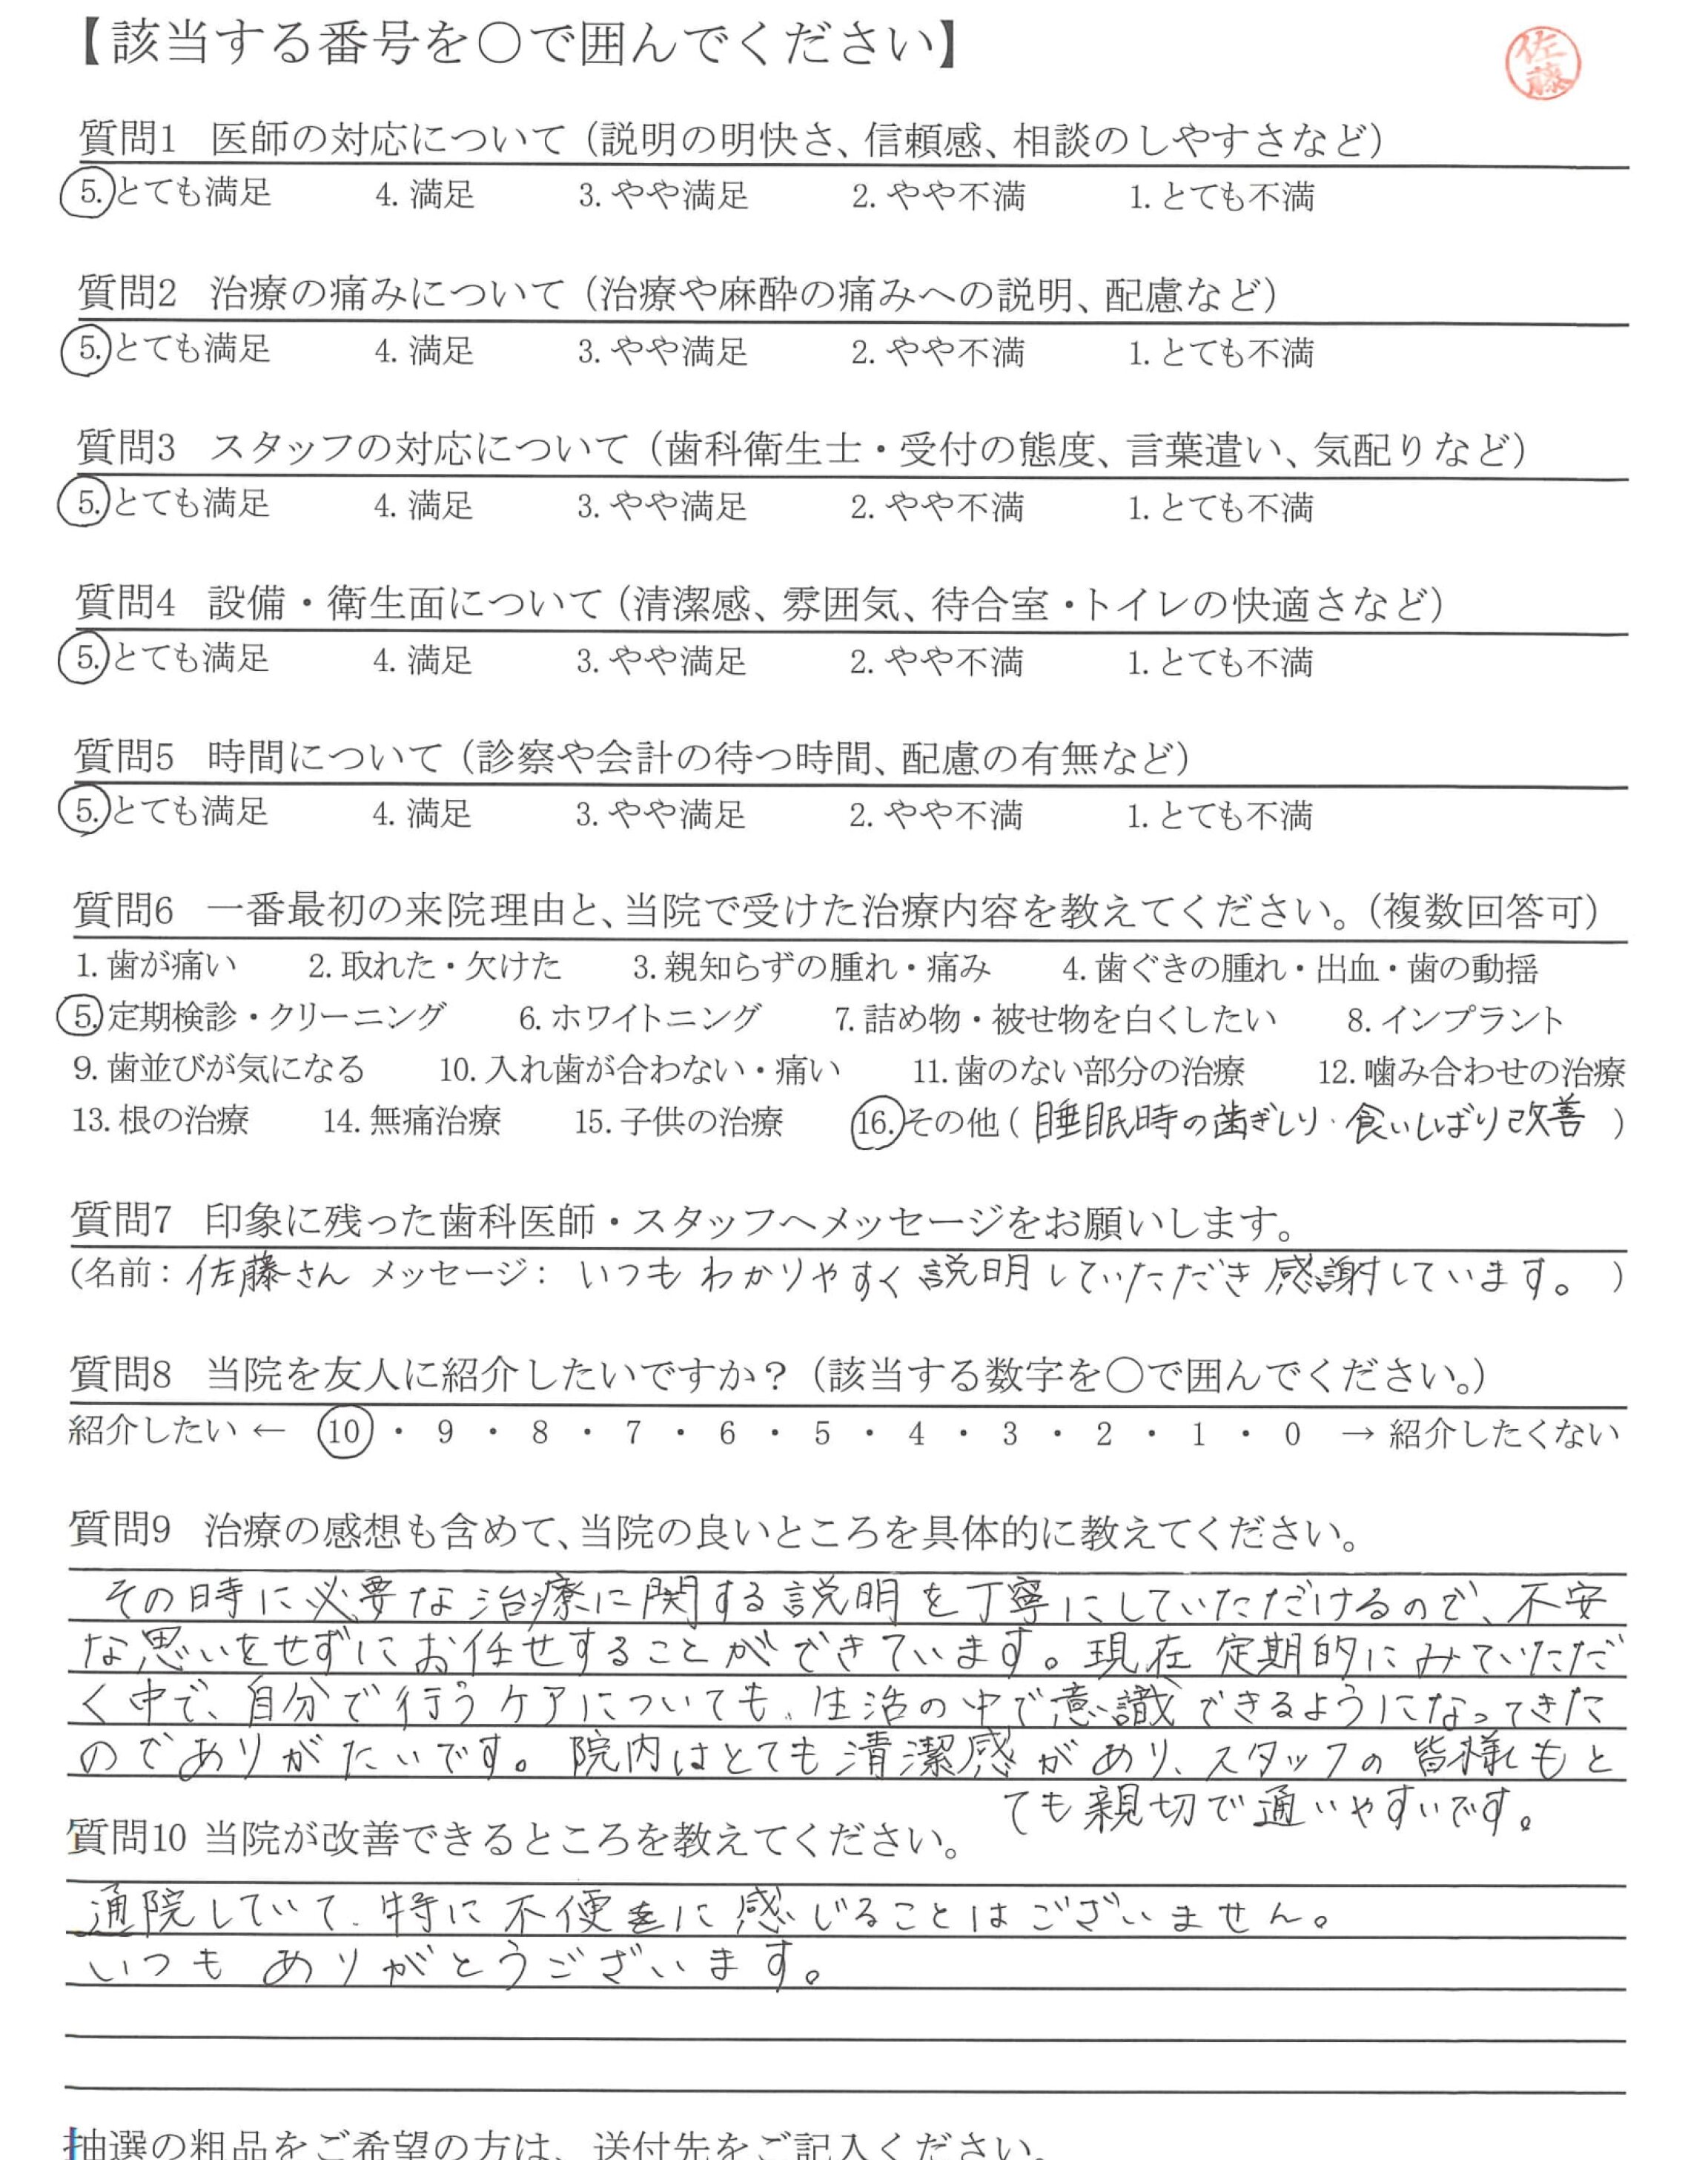 【該当する番号を〇で囲んでください】
佐藤
質問1 医師の対応について（説明の明快さ、信頼感、相談のしやすさなど）
5. とても満足 4. 満足 3. やや満足 2. やや不満 1. とても不満
質問2 治療の痛みについて（治療や麻酔の痛みへの説明、配慮など）
5. とても満足 4. 満足 3. やや満足 2. やや不満 1. とても不満
質問3 スタッフの対応について（歯科衛生士・受付の態度、言葉遣い、気配りなど）
5. とても満足 4. 満足 3. やや満足 2. やや不満 1. とても不満
質問4 設備・衛生面について（清潔感、雰囲気、待合室・トイレの快適さなど）
5. とても満足 4. 満足 3. やや満足 2. やや不満 1. とても不満
質問5 時間について（診察や会計の待つ時間、配慮の有無など）
5. とても満足 4. 満足 3. やや満足 2. やや不満 1. とても不満
質問6 一番最初の来院理由と、当院で受けた治療内容を教えてください。（複数回答可）
1. 歯が痛い 2. 取れた・欠けた 3. 親知らずの腫れ・痛み 4. 歯ぐきの腫れ・出血・歯の動揺
5. 定期検診・クリーニング 6. ホワイトニング 7. 詰め物・被せ物を白くしたい 8. インプラント
9. 歯並びが気になる 10. 入れ歯が合わない・痛い 11. 歯のない部分の治療 12. 噛み合わせの治療
13. 根の治療 14. 無痛治療 15. 子供の治療 16. その他（睡眠時の歯ぎしり・食いしばり改善）
質問7 印象に残った歯科医師・スタッフへメッセージをお願いします。
（名前：佐藤さん メッセージ：いつもわかりやすく説明していただき感謝しています。）
質問8 当院を友人に紹介したいですか？（該当する数字を〇で囲んでください。）
紹介したい ← 10 ・ 9 ・ 8 ・ 7 ・ 6 ・ 5 ・ 4 ・ 3 ・ 2 ・ 1 ・ 0 → 紹介したくない
質問9 治療の感想も含めて、当院の良いところを具体的に教えてください。
その時に必要な治療に関する説明を丁寧にしていただけるので、不安
な思いをせずにお任せすることができています。現在 定期的にみていただ
く中で、自分で行うケアについても、生活の中で意識できるようになってきた
のでありがたいです。院内はとても清潔感があり、スタッフの皆様もと
ても親切で通いやすいです。
質問10 当院が改善できるところを教えてください。
通院していて、特に不便に感じることはございません。
いつもありがとうございます。
抽選の粗品をご希望の方は、送付先をご記入ください。